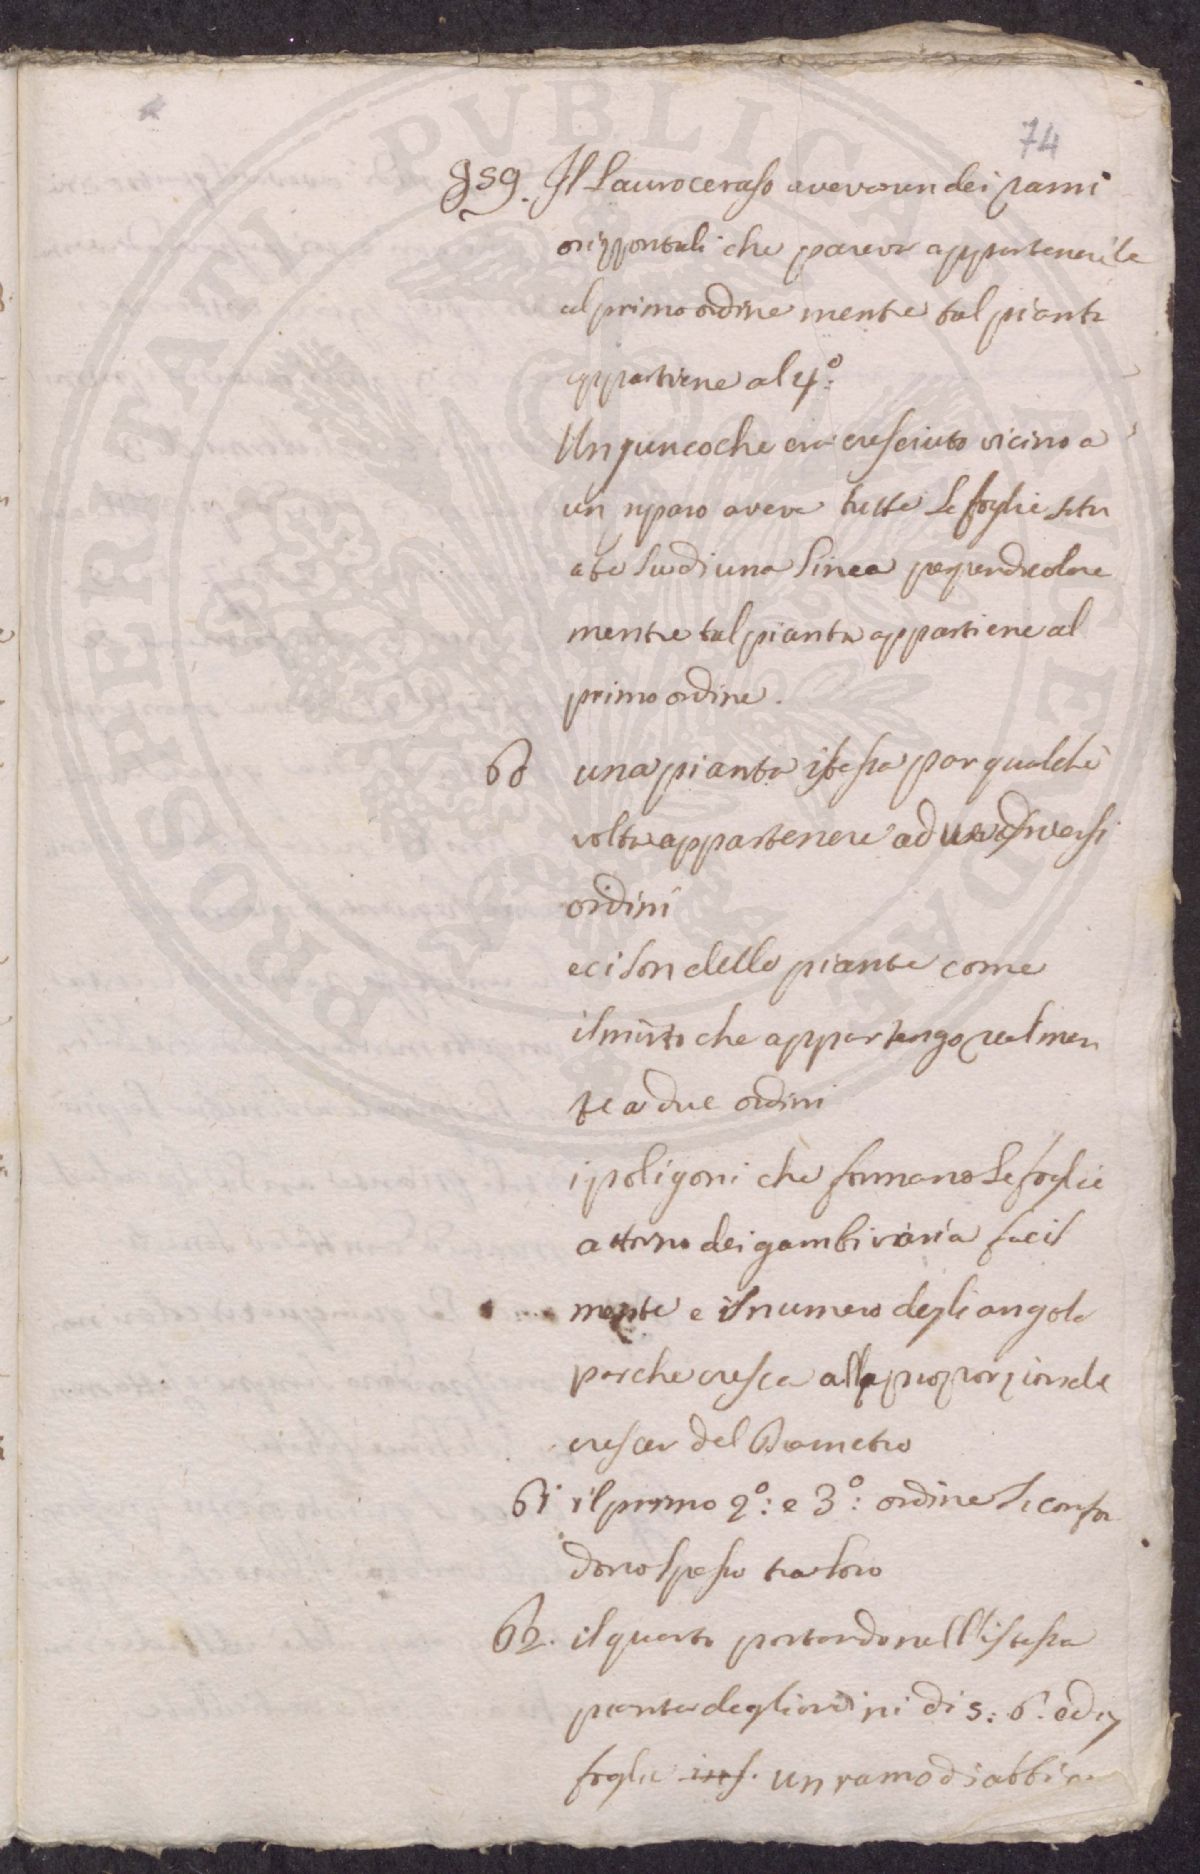 74
§59. Il Lauroceraso avevan dei rami
orizzontali che pareva appartenerle
al primo ordine mentre tal pianta
appartiene al 4º:
Un junco che era cresciuto vicino a
un riparo aveva tutte le foglie situ
ate su di una linea perpendicolare
mentre tal pianta appartiene al
primo ordine.
60 una pianta istessa par qualche
volta appartenere ad diversi
ordini
e ci son delle piante come
il mirto che appartengo realmen
te a due ordini
i poligoni che formano le foglie
attorno dei gambi varia facil
mente e il numero degli angoli
par che cresca alla proporzionale
crescer del Diametro
61 il primo 2º: e 3º: ordine si confon
dono spesso tra loro
62. il quarto portando nell'istessa
pianta degli ordini di 5: 6: e di 7
foglie un ramo di abbia
PROSPERITATI PVBLICAE AVGENDAE